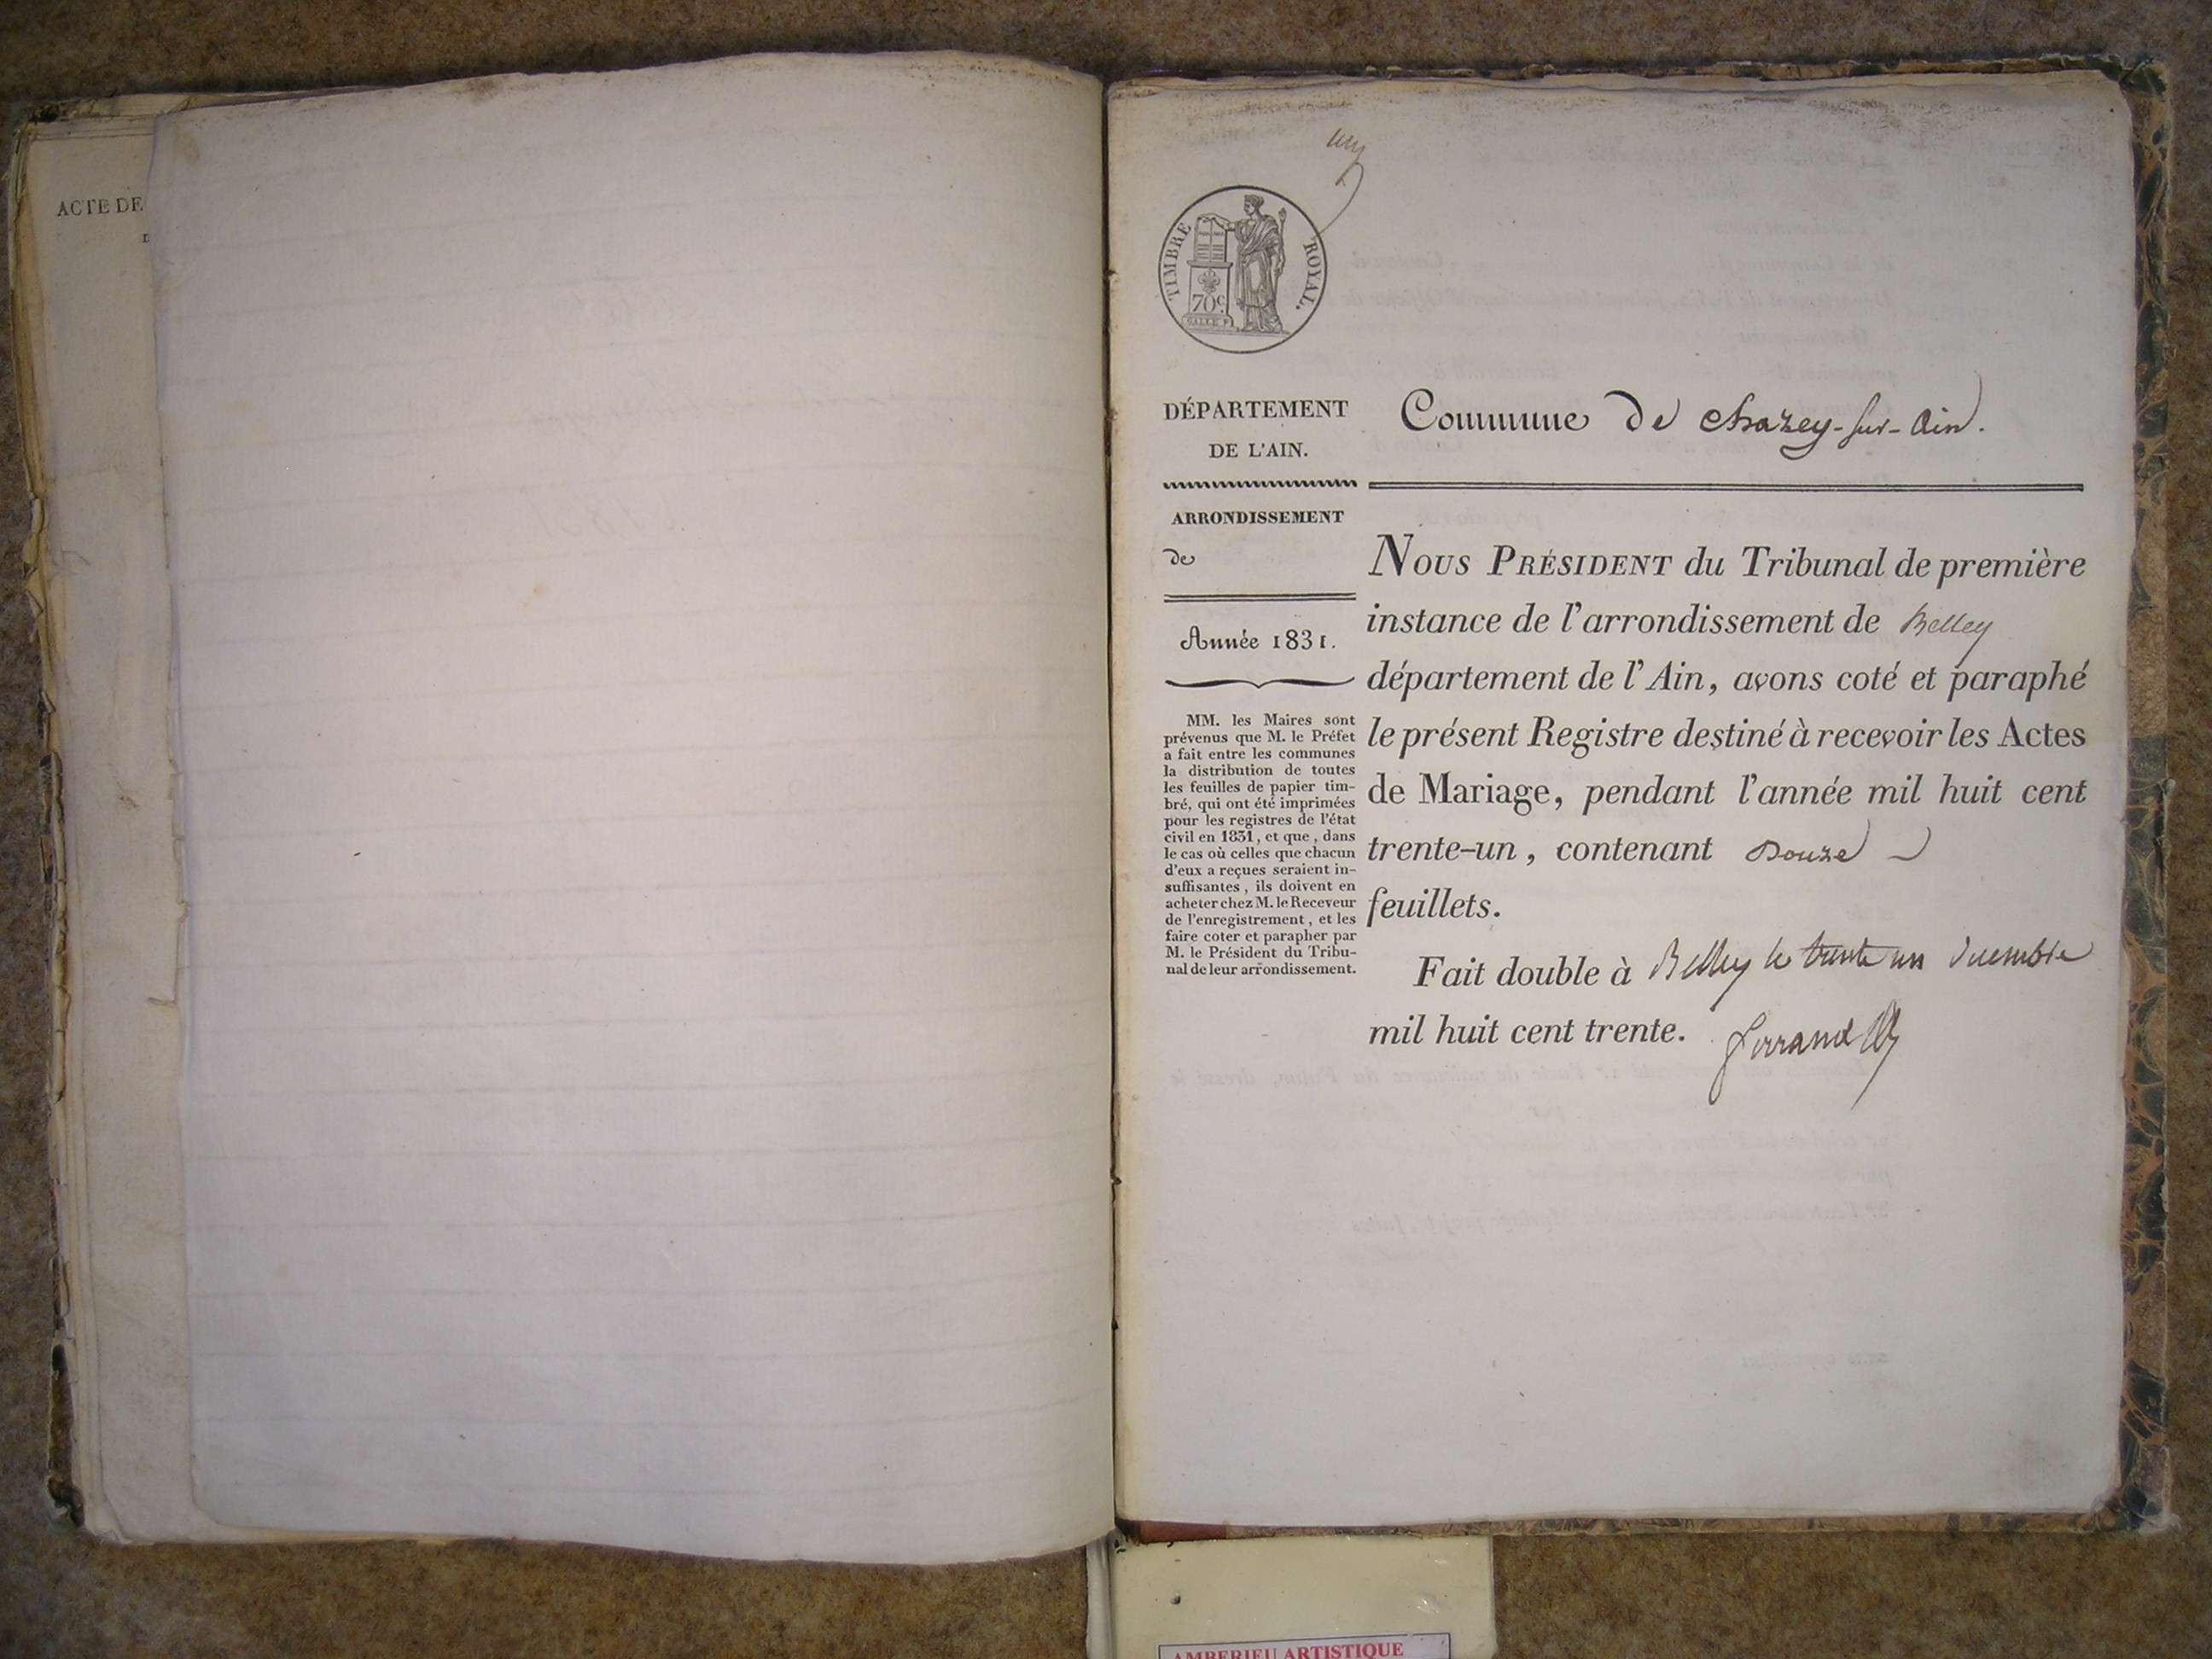 ACTE DE
TIMBRE ROYAL.
70c.
DÉPARTEMENT
DE L'AIN.
Commune de Chazey-sur-Ain.
ARRONDISSEMENT
de
Année 1831.
MM. les Maires sont
prévenus que M. le Préfet
a fait entre les communes
la distribution de toutes
les feuilles de papier tim-
bré, qui ont été imprimées
pour les registres de l'état
civil en 1831, et que, dans
le cas où celles que chacun
d'eux a reçues seraient in-
suffisantes, ils doivent en
acheter chez M. le Receveur
de l'enregistrement, et les
faire coter et parapher par
M. le Président du Tribu-
nal de leur arrondissement.
NOUS PRÉSIDENT du Tribunal de première
instance de l'arrondissement de Belley
département de l'Ain, avons coté et paraphé
le présent Registre destiné à recevoir les Actes
de Mariage, pendant l'année mil huit cent
trente-un, contenant Douze
feuillets.
Fait double à Belley le trente un décembre
mil huit cent trente.
AMBERIEU ARTISTIQUE